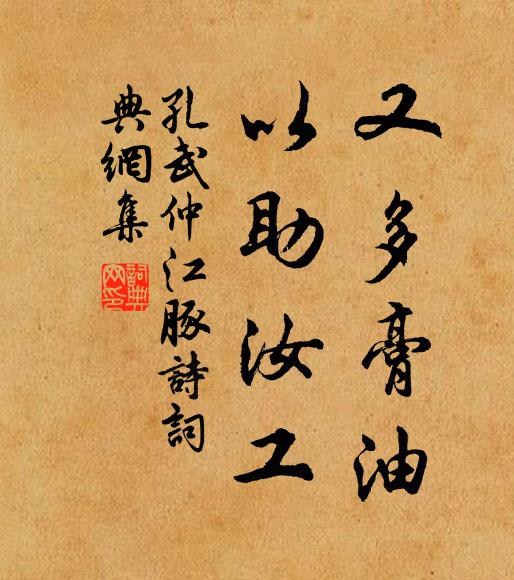 又多膏油
以助汝工
孔武仲江豚詩詞
典網集
詞典网印